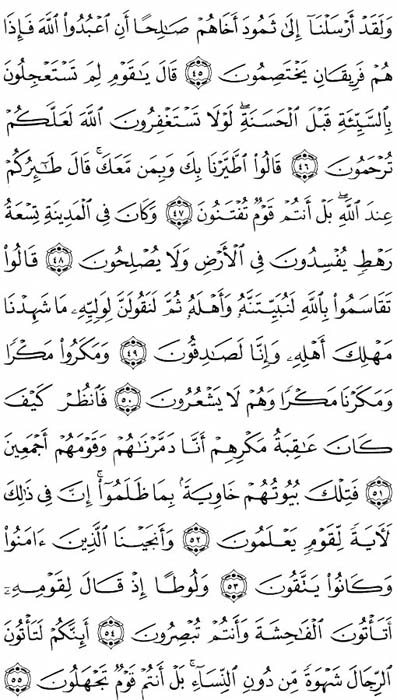 وَلَقَدْ أَرْسَلْنَآ إِلَىٰ ثَمُودَ أَخَاهُمْ صَـٰلِحًا أَنِ ٱعْبُدُواْ ٱللَّهَ فَإِذَا
هُمْ فَرِيقَانِ يَخْتَصِمُونَ ٤٥ قَالَ يَـٰقَوْمِ لِمَ تَسْتَعْجِلُونَ
بِٱلسَّيِّئَةِ قَبْلَ ٱلْحَسَنَةِۖ لَوْلَا تَسْتَغْفِرُونَ ٱللَّهَ لَعَلَّكُمْ
تُرْحَمُونَ ٤٦ قَالُواْ ٱطَّيَّرْنَا بِكَ وَبِمَن مَّعَكَۚ قَالَ طَـٰٓئِرُكُمْ
عِندَ ٱللَّهِۖ بَلْ أَنتُمْ قَوْمٌ تُفْتَنُونَ ٤٧ وَكَانَ فِى ٱلْمَدِينَةِ تِسْعَةُ
رَهْطٍ يُفْسِدُونَ فِى ٱلْأَرْضِ وَلَا يُصْلِحُونَ ٤٨ قَالُواْ
تَقَاسَمُواْ بِٱللَّهِ لَنُبَيِّتَنَّهُۥ وَأَهْلَهُۥ ثُمَّ لَنَقُولَنَّ لِوَلِيِّهِۦ مَا شَهِدْنَا
مَهْلِكَ أَهْلِهِۦ وَإِنَّا لَصَـٰدِقُونَ ٤٩ وَمَكَرُواْ مَكْرًا
وَمَكَرْنَا مَكْرًا وَهُمْ لَا يَشْعُرُونَ ٥٠ فَٱنظُرْ كَيْفَ
كَانَ عَـٰقِبَةُ مَكْرِهِمْ أَنَّا دَمَّرْنَـٰهُمْ وَقَوْمَهُمْ أَجْمَعِينَ
٥١ فَتِلْكَ بُيُوتُهُمْ خَاوِيَةًۢ بِمَا ظَلَمُوٓاْۗ إِنَّ فِى ذَٰلِكَ
لَـَٔايَةً لِّقَوْمٍ يَعْلَمُونَ ٥٢ وَأَنجَيْنَا ٱلَّذِينَ ءَامَنُواْ
وَكَانُواْ يَتَّقُونَ ٥٣ وَلُوطًا إِذْ قَالَ لِقَوْمِهِۦٓ
أَتَأْتُونَ ٱلْفَـٰحِشَةَ وَأَنتُمْ تُبْصِرُونَ ٥٤ أَئِنَّكُمْ لَتَأْتُونَ
ٱلرِّجَالَ شَهْوَةً مِّن دُونِ ٱلنِّسَآءِۚ بَلْ أَنتُمْ قَوْمٌ تَجْهَلُونَ ٥٥